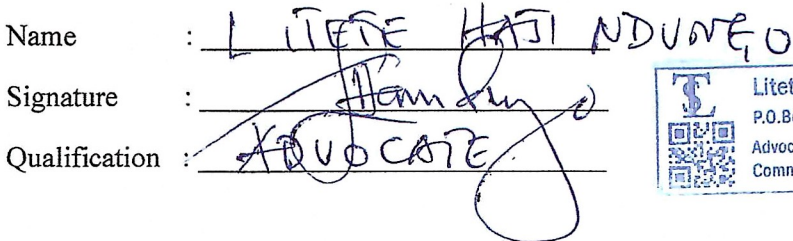 Name : LITETE HAJI NDUNGO
Signature :
Qualification : ADVOCATE
Litet
P.O.B
Advoc
Comn